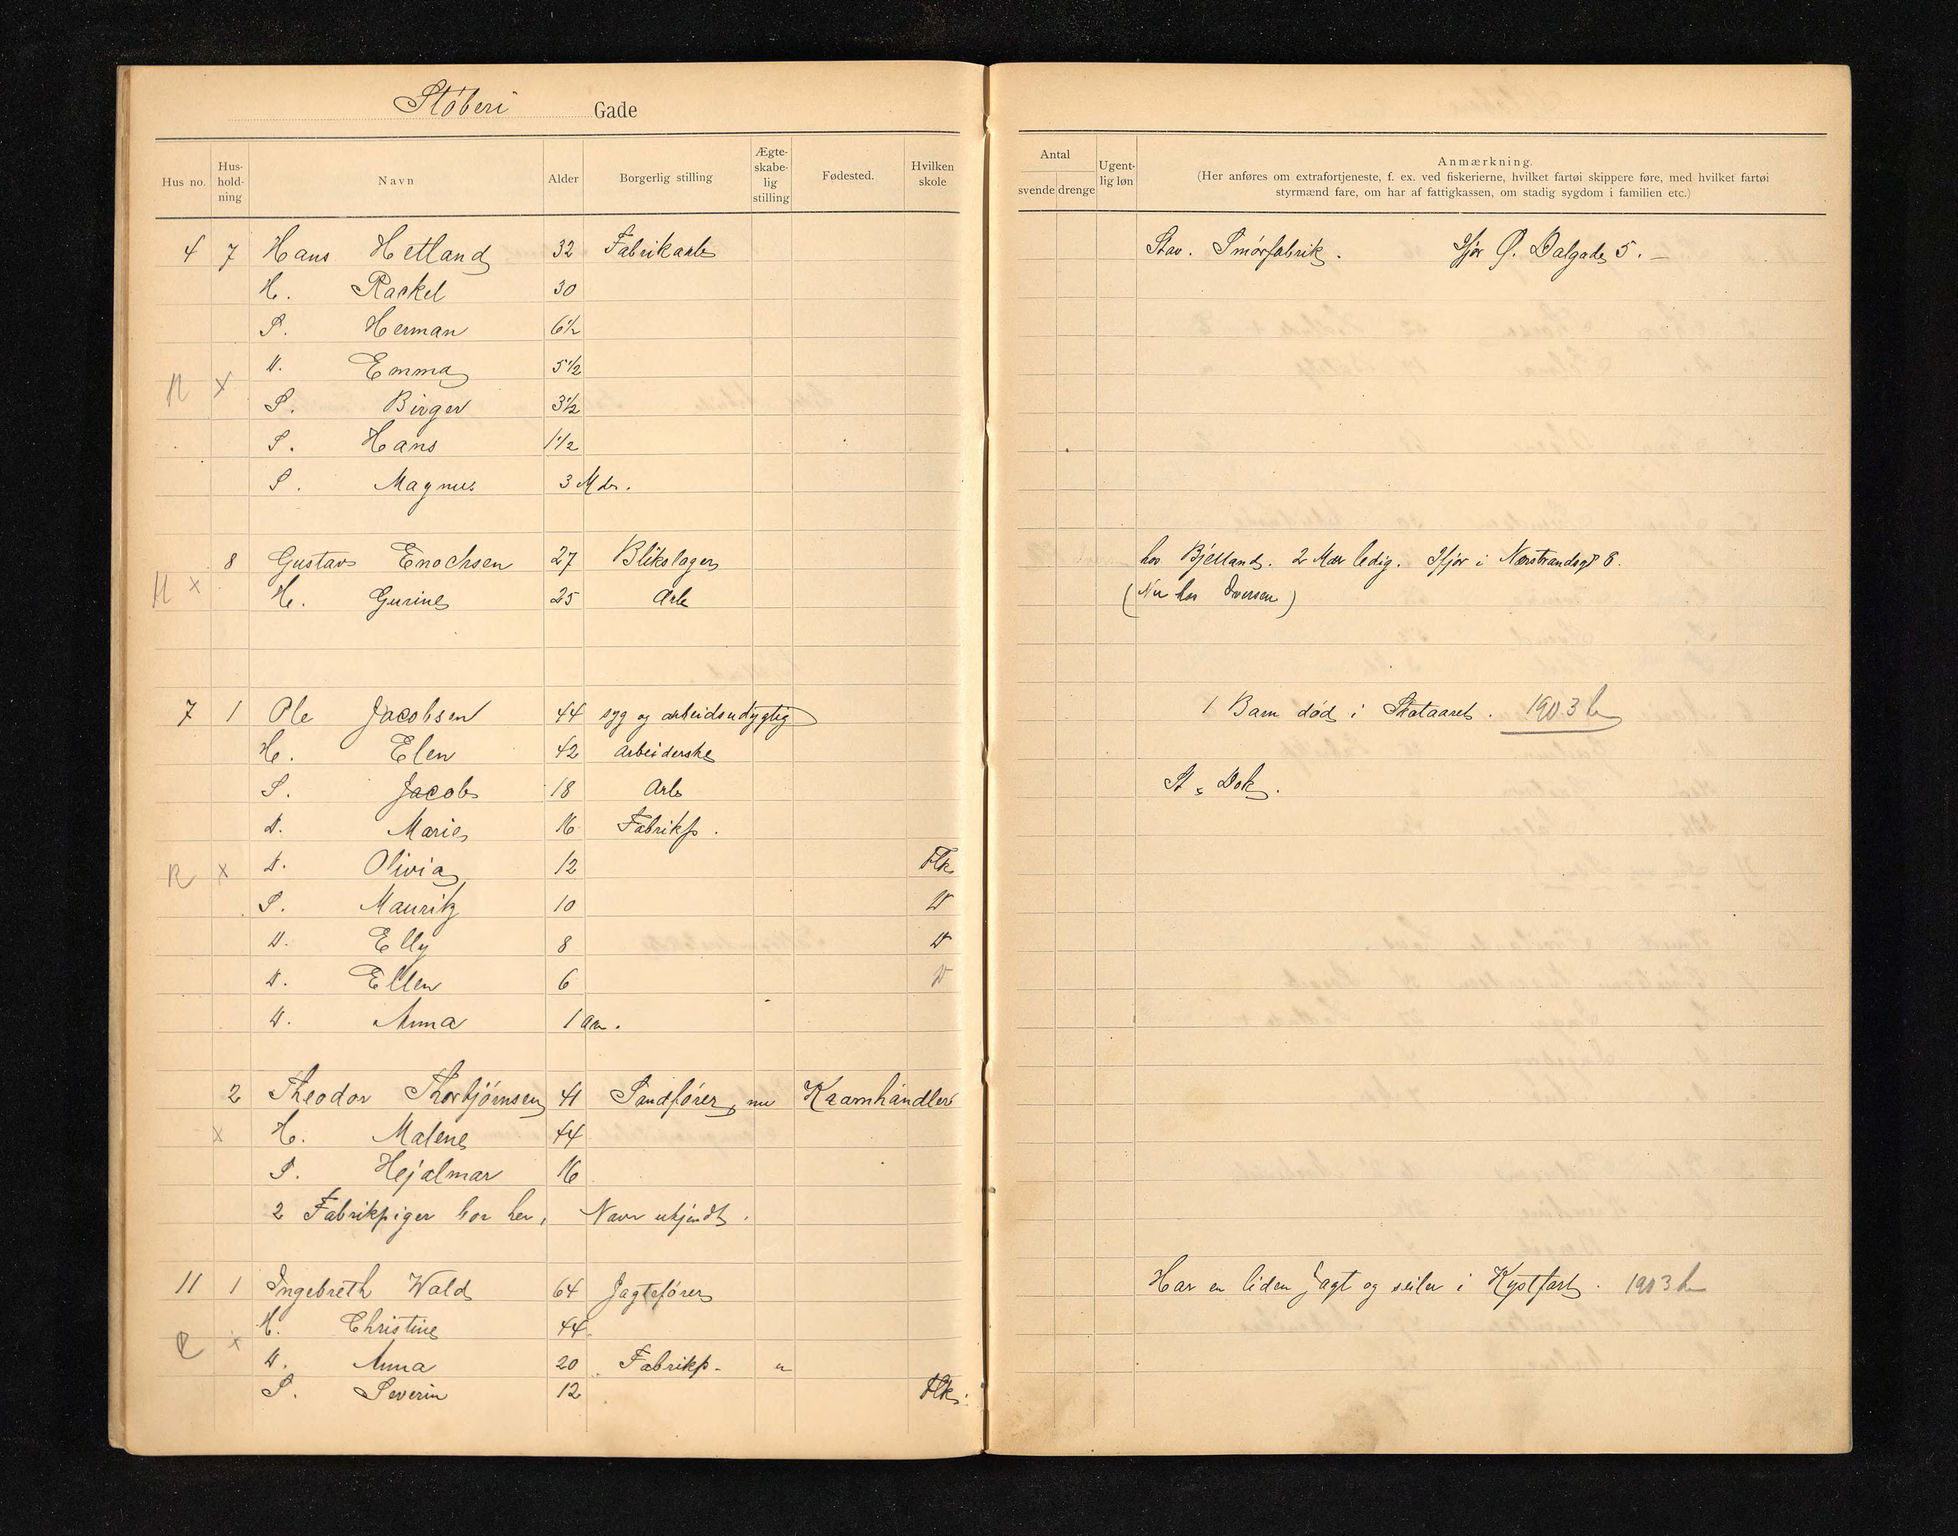 Støberi Gade
Hus no. Hus-hold-ning Navn Alder Borgerlig stilling Ægte-skabe-lig stilling Fødested. Hvilken skole
Antal svende drenge Ugent-lig løn Anmærkning.
(Her anføres om extrafortjeneste, f. ex. ved fiskerierne, hvilket fartøi skippere føre, med hvilket fartøi
styrmænd fare, om har af fattigkassen, om stadig sygdom i familien etc.)
4 7 Hans Hetland 32 Fabrikarb Stav. Smørfabrik. Ifjor Ø. Dalgade 5. —
H. Rakel 30
S. Herman 6 1/2
D. Emma 5 1/2
R x
S. Birger 3 1/2
S. Hans 1 1/2
S. Magnus 3 Mdr.
8 Gustav Enochsen 27 Blikslager hos Bjelland. 2 Mdr ledig. Ifjor i Nærstrandsgd 8.
H x H. Gurine 25 Arb (Nu hos Iversen)
7 1 Ole Jacobsen 44 syg og arbeidsudygtig 1 Barn død i Skataaret. 1903
H. Elen 42 Arbeiderske
S. Jacob 18 Arb St. Dok.
D. Marie 16 Fabrikp.
R x D. Olivia 12 Flk
S. Mauritz 10 D
D. Elly 8 D
D. Ellen 6 D
D. Anna 1 Aar.
2 Theodor Thorbjørnsen 41 Sandfører, nu Kramhandler
x H. Malene 44
S. Hejalmar 16
2 Fabrikpiger bor her, Navn ukjendt.
11 1 Ingebreth Wald 64 Jagtefører Har en liden Jagt og seiler i Kystfart. 1903
H. Christine 44
R x
D. Anna 20 Fabrikp. u
S. Severin 12 Flk.